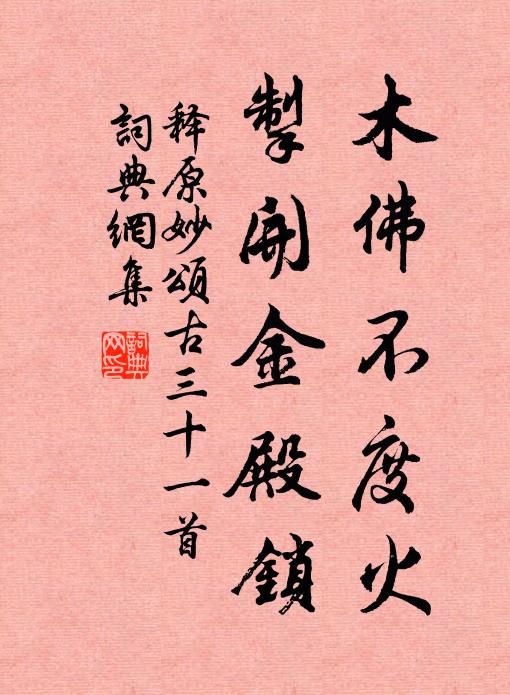 木佛不度火
掣開金殿鎖
释原妙頌古三十一首
詞典網集
詞典網印